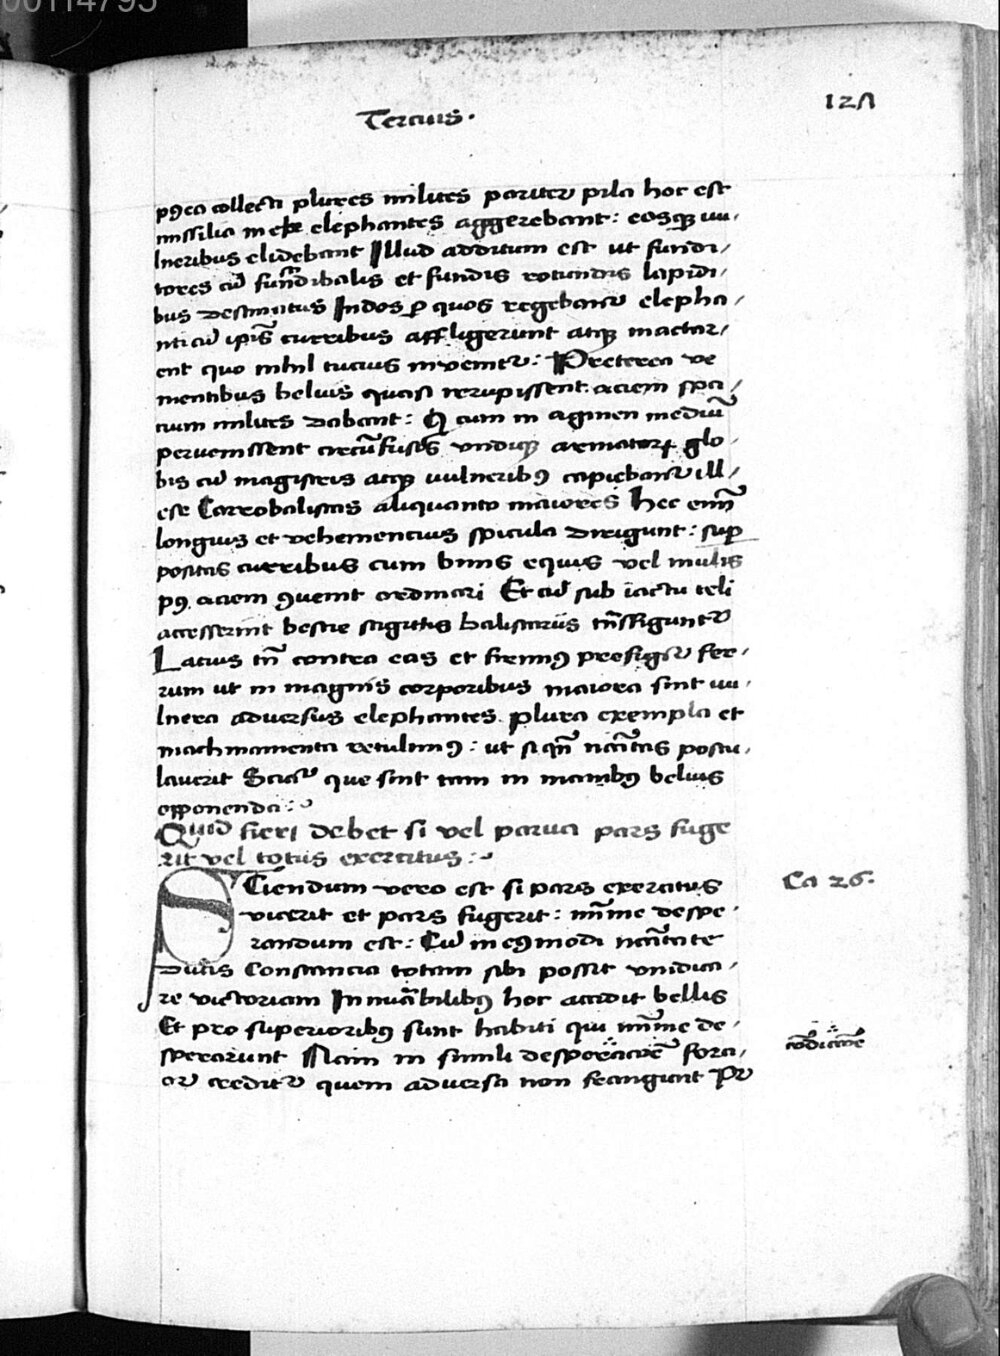 00114795
Tercius.
121
p9ea collecti plures milites pariter pila hoc est
missilia in elephantes aggerebant: eosq3 uu/
lneribus elidebant Illud additum est ut fundi/
tores cū fundibalis et fundis rotundis lapidi/
bus destinatis Indos ꝑ quos regebant᷑ elepha/
nti cū ipīs curribus affligerunt atq3 mactar/
ent quo nihil tucius invenit᷑: Preterea ve
nientibus beluis quasi rerupissent aciem spa/
cium milites dabant: Q cum in agmen mediū
pervenissent circūfusis undiq3 armatorꝝ glo/
bis cū magistris atq3 uulnerib9 capiebant᷑ ill/
ese Carrobalistas aliquanto maiores Hec enim̄
longius et vehementius spicula dirigunt: suꝑ
positas curribus cum binis equis vel mulis
p9 aciem 9venit ordinari Et cū sub iactu teli
accesserint bestie sagittis balistariis tn̄sfigunt᷑
Latius tn̄ contra eas et firmi9 prefigit᷑ fer/
rum ut in magnis corporibus maiora sint uu/
lnera adversus elephantes plura exempla et
machinamenta retulim9: ut si qn̄ nccītas postu/
laverit Sciat᷑ que sint tam in manib9 beluis
opponenda:
Quid fieri debet si vel parva pars fuge
rit vel totus exercitus:
SCiendum vero est si pars exercitus
Ca 26.
vicerit et pars fugerit: mīme despe/
randum est: Cū in e9modi nccītate
Ducis Constancia totam sibi possit vndica/
re victoriam In nūabilib9 hoc accidit bellis
Et pro superiorib9 sunt habiti qui mīme de/
sperarunt Nam in simili desperacōe forci/
condicione
or credit᷑ quem adversa non frangunt Pr